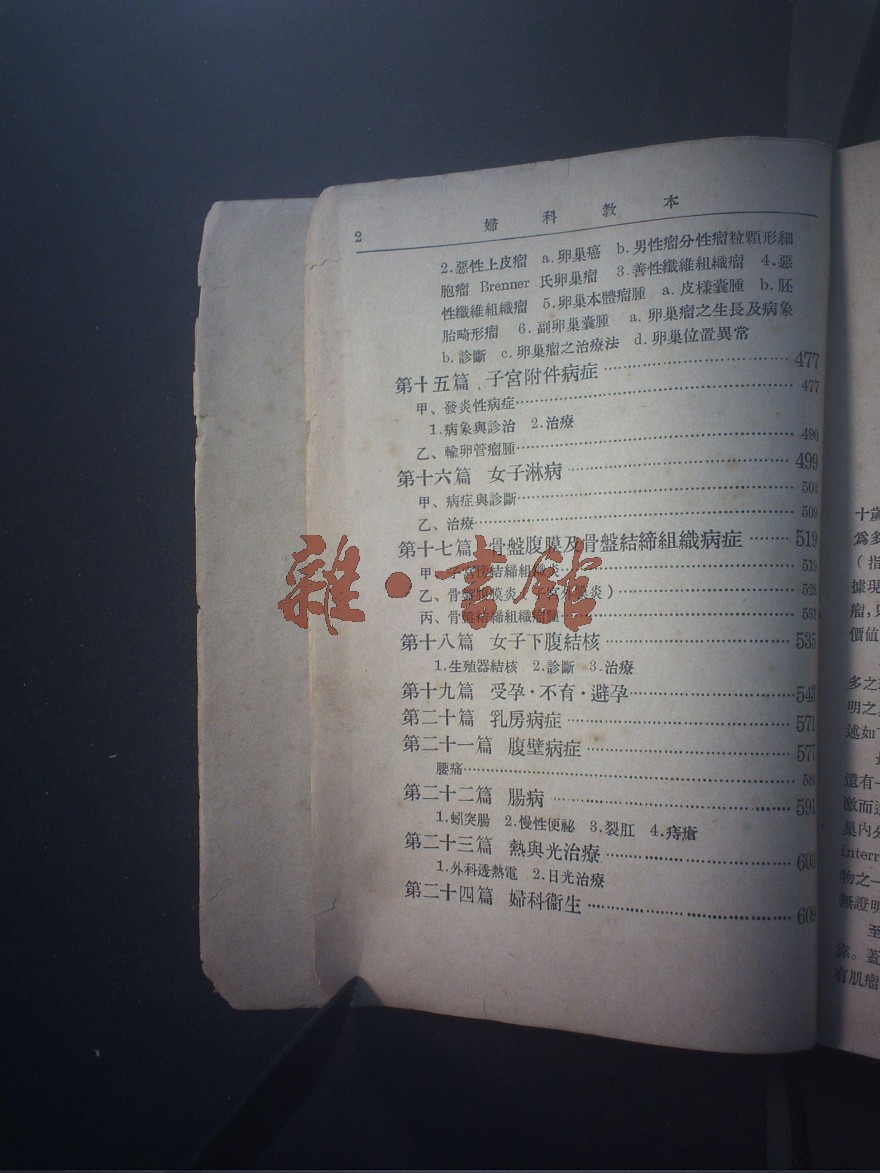 2
婦科教本
2.惡性上皮瘤 a.卵巢癌 b.男性瘤分性瘤粒顆形細
胞瘤 Brenner 氏卵巢瘤 3.善性纖維組織瘤 4.惡
性纖維組織瘤 5.卵巢本體瘤腫 a.皮樣囊腫 b.胚
胎畸形瘤 6.副卵巢囊腫 a.卵巢瘤之生長及病象
b.診斷 c.卵巢瘤之治療法 d.卵巢位置異常
第十五篇 子宮附件病症 477
甲、發炎性病症 477
1.病象與診治 2.治療
乙、輸卵管瘤腫 496
第十六篇 女子淋病 499
甲、病症與診斷 503
乙、治療 509
第十七篇 骨盤腹膜及骨盤結締組織病症 519
甲、子宮傍結締組織炎 519
乙、骨盤腹膜炎(子宮外膜炎) 528
丙、骨盤結締組織瘤腫 531
第十八篇 女子下腹結核 535
1.生殖器結核 2.診斷 3.治療
第十九篇 受孕·不育·避孕 543
第二十篇 乳房病症 571
第二十一篇 腹壁病症 577
腰痛 586
第二十二篇 腸病 591
1.蚓突腸 2.慢性便祕 3.裂肛 4.痔瘡
第二十三篇 熱與光治療 603
1.外科透熱電 2.日光治療
第二十四篇 婦科衞生 609
雜·書館
十歲
爲多
(指
據現
瘤,
價値
多之
明之
述如
遺有一
激而
巢內分
interr
物之一
無證明
至
靠。蓋
有肌瘤